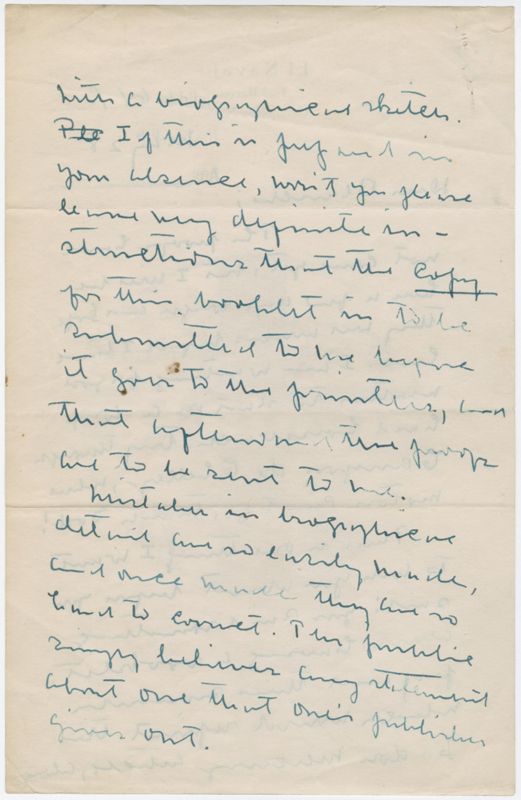 with a biographical sketch.
Ple If this is prepared in
your absence, won't you please
leave very definite in-
structions that the copy
for this booklet is to be
submitted to me before
it goes to the printers, and
that afterward the proofs
are to be sent to me.
Mistakes in biographical
detail are so easily made,
and once made they are so
hard to correct. The public
simply believes any statement
about one that one's publisher
gives out.